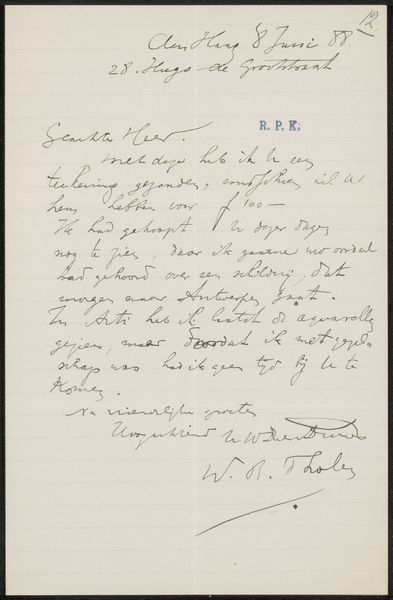 12
den Haag 8 Juni 88
28. Hugo de Grootstraat
R. P. K.
Geachte Heer.
Met deze heb ik U een
teekening gezonden, misschien wil U
hem hebben voor f 100 —
Ik had gehoopt U dezer dagen
nog te zien, daar ik gaarne uw oordeel
had gehoord over een schilderij, dat
morgen naar Antwerpen gaat.
In Arti heb ik laatst de aquarellen
gezien, maar doordat ik met gezel-
schap was had ik geen tijd bij U te
komen.
Na vriendelijke groeten
Hoogachtend U W Dienstw
W. B. Tholen